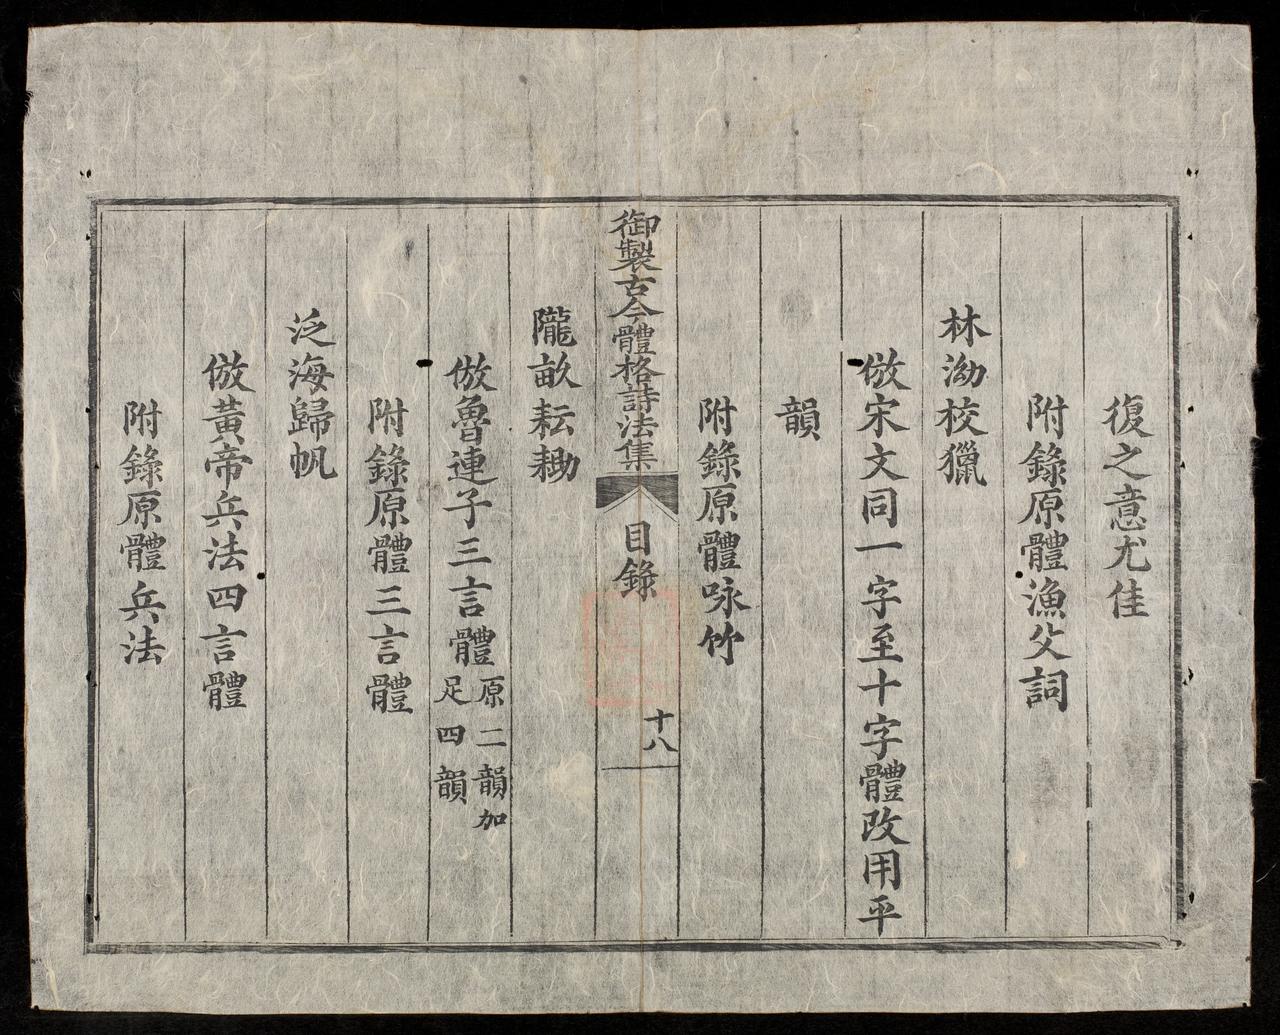 復之意尤佳
附錄原體漁父詞
林泑校獵
倣宋文同一字至十字體改用平
韻
附錄原體咏竹
御製古今體格詩法集 目錄 十八
隴畝耘耡
倣魯連子三言體 原二韻加
足四韻
附錄原體三言體
泛海歸帆
倣黃帝兵法四言體
附錄原體兵法